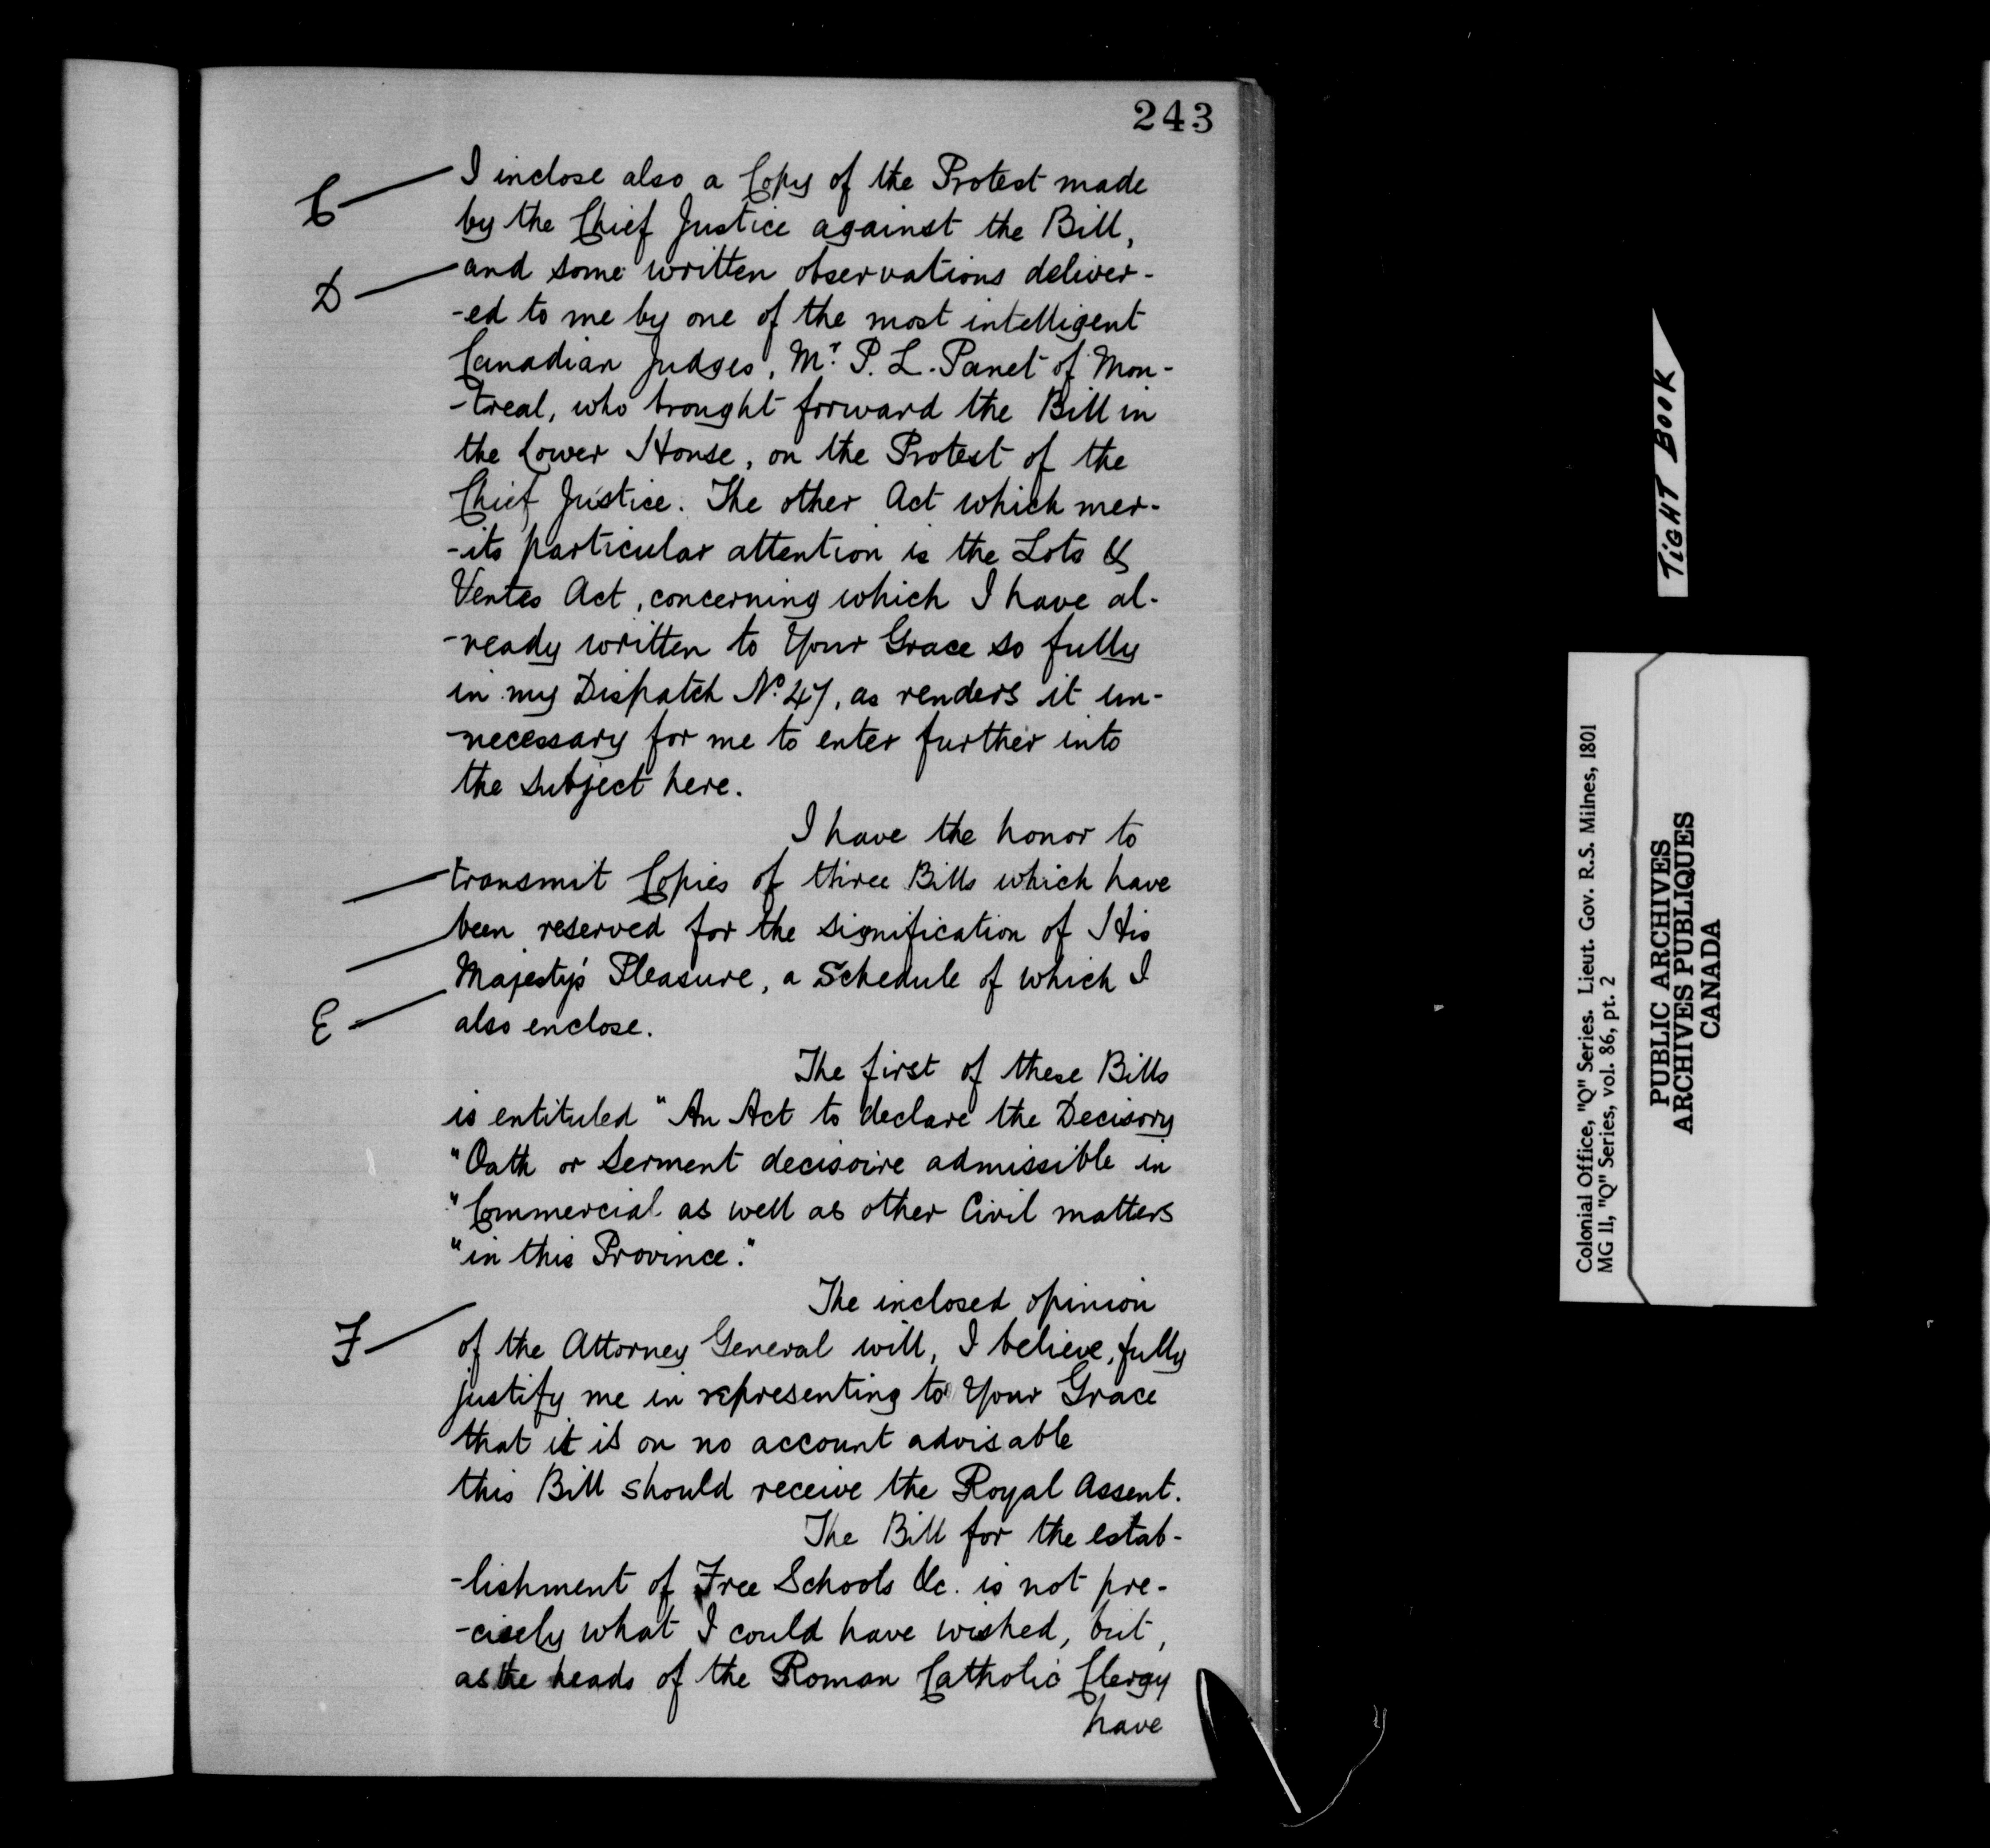 243
C
I inclose also a Copy of the Protest made
by the Chief Justice against the Bill,
D
and some written observations deliver-
-ed to me by one of the most intelligent
Canadian Judges, Mr. P. L. Panet of Mon-
-treal, who brought forward the Bill in
the Lower House, on the Protest of the
Chief Justice. The other Act which mer-
-its particular attention is the Lots &
Ventes Act, concerning which I have al-
-ready written to Your Grace so fully
in my Dispatch No. 47, as renders it un-
-necessary for me to enter further into
the subject here.
I have the honor to
transmit Copies of three Bills which have
been reserved for the signification of His
Majesty's Pleasure, a Schedule of which I
E
also enclose.
The first of these Bills
is entituled "An Act to declare the Decisory
"Oath or Serment decisoire admissible in
"Commercial as well as other Civil matters
"in this Province."
The inclosed opinion
F
of the Attorney General will, I believe, fully
justify me in representing to Your Grace
that it is on no account advisable
this Bill should receive the Royal Assent.
The Bill for the estab-
-lishment of Free Schools &c. is not pre-
-cisely what I could have wished, but,
as the heads of the Roman Catholic Clergy
have
TIGHT BOOK
Colonial Office, "Q" Series. Lieut. Gov. R.S. Milnes, 1801
MG 11, "Q" Series, vol. 86, pt. 2
PUBLIC ARCHIVES
ARCHIVES PUBLIQUES
CANADA